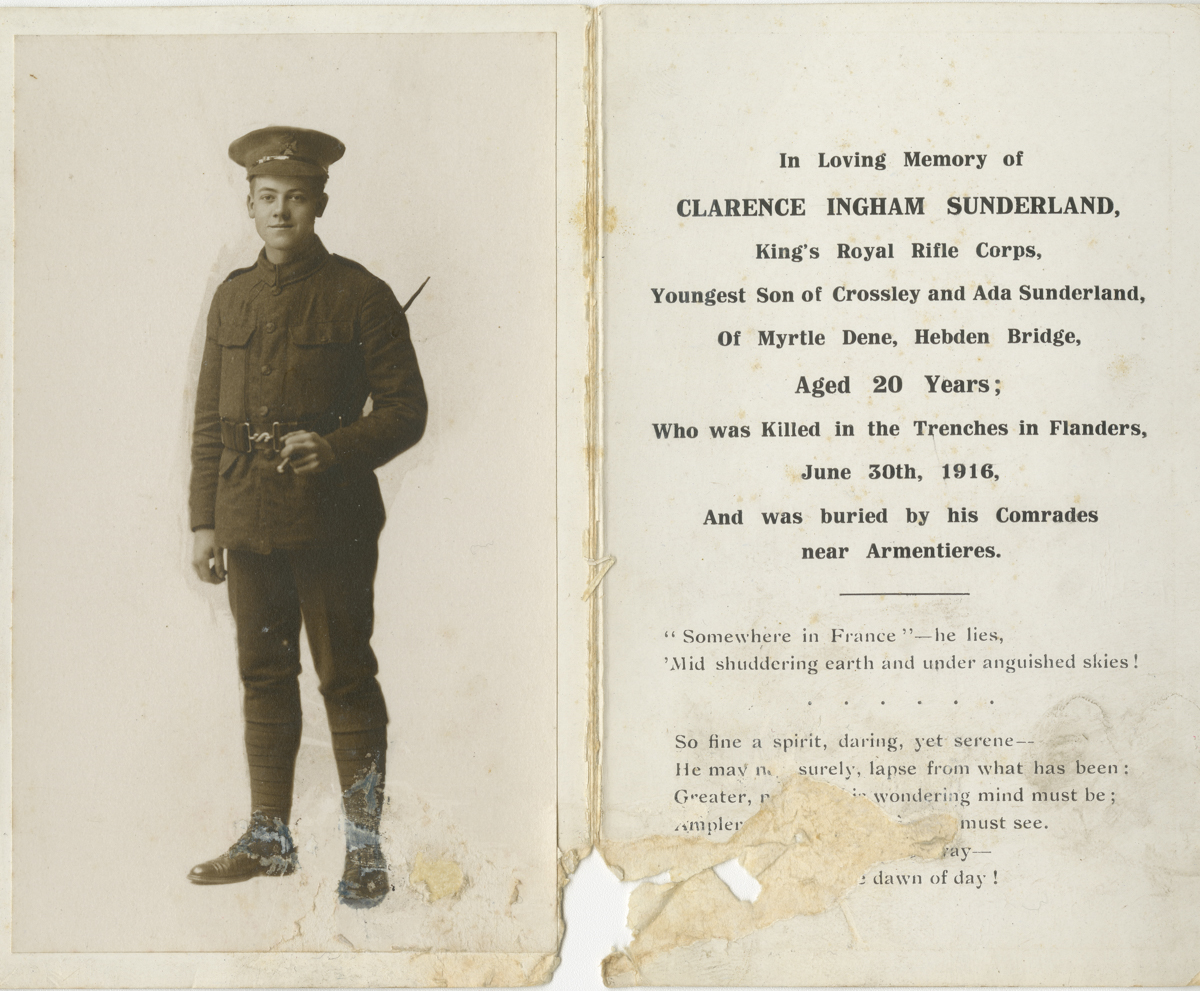 In Loving Memory of
CLARENCE INGHAM SUNDERLAND,
King's Royal Rifle Corps,
Youngest Son of Crossley and Ada Sunderland,
Of Myrtle Dene, Hebden Bridge,
Aged 20 Years;
Who was Killed in the Trenches in Flanders,
June 30th, 1916,
And was buried by his Comrades
near Armentieres.
“Somewhere in France”—he lies,
’Mid shuddering earth and under anguished skies!
. . . . . .
So fine a spirit, daring, yet serene—
He may surely, lapse from what has been:
Greater, wondering mind must be;
must see.
dawn of day!